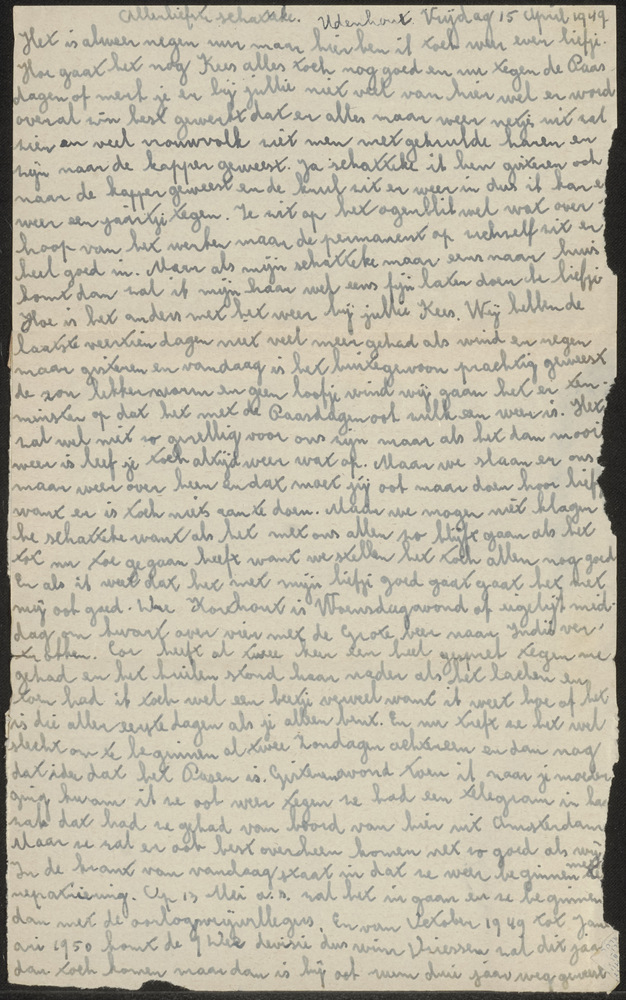 Allerliefste schatteke. Udenhout. Vrijdag 15 April 1949
Het is alweer negen uur maar hier ben ik toch weer even liefje.
Hoe gaat het nog Kees alles toch nog goed en nu tegen de Paas
dagen of merk je er bij jullie niet veel van hier wel er word
overal zijn best gewerkt dat er alles maar weer netjes uit zal
zien en veel vrouwvolk ziet men met gekrulde haren en
zijn naar de kapper geweest. Ja schatteke ik ben gisteren ook
naar de kapper geweest en de krul zit er weer in dus ik kan e
weer een jaartje tegen. Ze zit op het ogenblik wel wat over
hoop van het werken maar de permanent op zichzelf zit er
heel goed in. Maar als mijn schatteke maar eens naar huis
komt dan zal ik mijn haar wel eens fijn laten doen he liefje
Hoe is het anders met het weer bij jullie Kees. Wij hebben de
laatste veertien dagen niet veel meer gehad als wind en regen
maar gisteren en vandaag is het buitegewoon prachtig geweest
de zon lekker warm en geen loofje wind wij gaan het er ten-
minsten op dat het met de Paasdagen ook zulk een weer is. Het
zal wel niet zo gezellig voor ons zijn maar als het dan mooi
weer is leef je toch altijd weer wat op. Maar we slaan er ons
maar weer over heen en dat moet jij ook maar doen hoor lief
want er is toch niets aan te doen. Maar we mogen niet klagen
he schatteke want als het met ons allen zo blijft gaan als het
tot nu toe gegaan heeft want we stellen het toch allen nog goed
En als ik weet dat het met mijn liefje goed gaat gaat het met
mij ook goed. Wim Horkhout is Woensdagavond of eigelijk mid-
dag om kwart over vier met de Grote beer naar Indië ver-
trokken. Cor heeft al twee keer een heel gesprek tegen me
gehad en het huilen stond haar nader als het lachen en
toen had ik toch wel een beetje verweel want ik weet hoe of het
is die aller eerste dagen als je alleen bent. En nu treft ze het wel
slecht om te beginnen al twee Zondagen achtereen en dan nog
dat idee dat het Pasen is. Gisterenavond toen ik naar je moeder
ging kwam ik ze ook weer tegen ze had een telegram in ha
zak dat had ze gehad van boord van hier uit Amsterdam
Maar ze zal er ook best overheen komen net zo goed als wij
In de krant van vandaag staat in dat ze weer beginnen met te
repatriering. Op 13 Mei a.s. zal het in gaan en ze beginnen
dan met de oorlogsvrijwilligers. En van October 1949 tot Jan
ari 1950 komt de 9 Dec divisie dus wim Vriessen zal dit jaar
dan toch komen maar dan is hij ook ruim drie jaar weg geweest